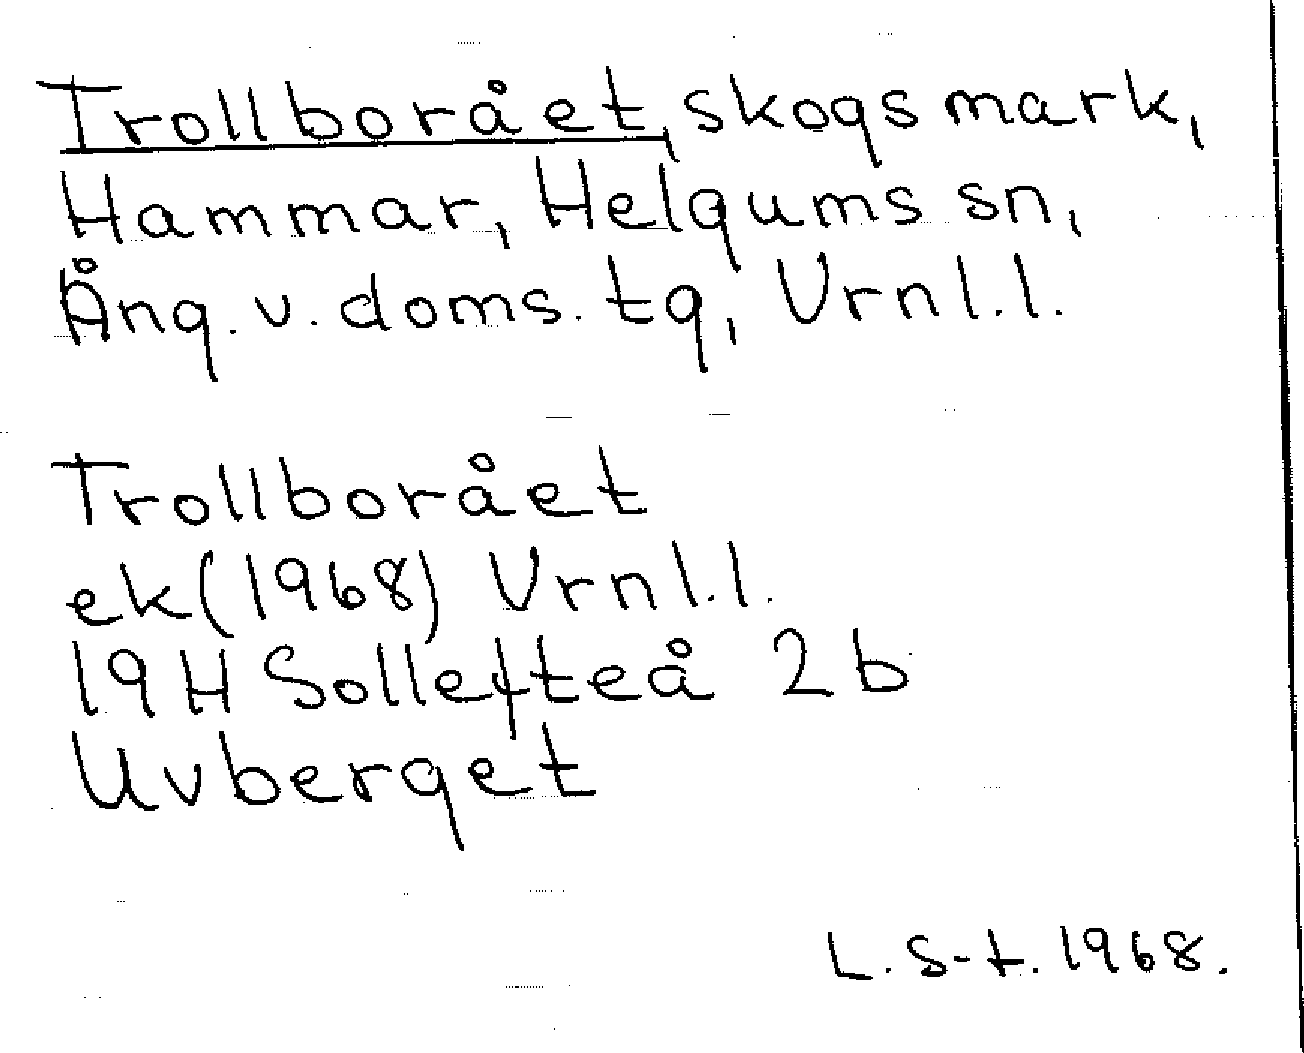 Trollborået, skogsmark,
Hammar, Helgums sn,
Ång. v. doms. tg, Vrnl. l.
Trollborået
ek(1968) Vrnl. l.
19H Sollefteå 2b
Uvberget
L. S-t. 1968.